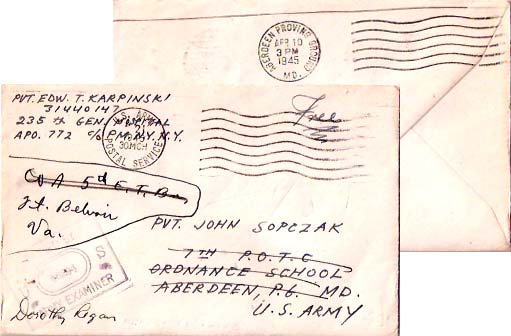 ABERDEEN PROVING GROUND
APR 10
3 PM
1945
MD.
PVT. EDW. T. KARPINSKI
31440147
235 th GEN. HOSPITAL
APO. 772 c/o PM. N.Y. N.Y.
U.S. ARMY
POSTAL SERVICE
Free
Co A 5th E.T. Bn
Ft. Belvoir
Va.
PVT. JOHN SOPCZAK
7TH P.O.T.C
ORDNANCE SCHOOL
ABERDEEN P.G. MD.
U.S. ARMY
EXAMINER
Dorothy Regan